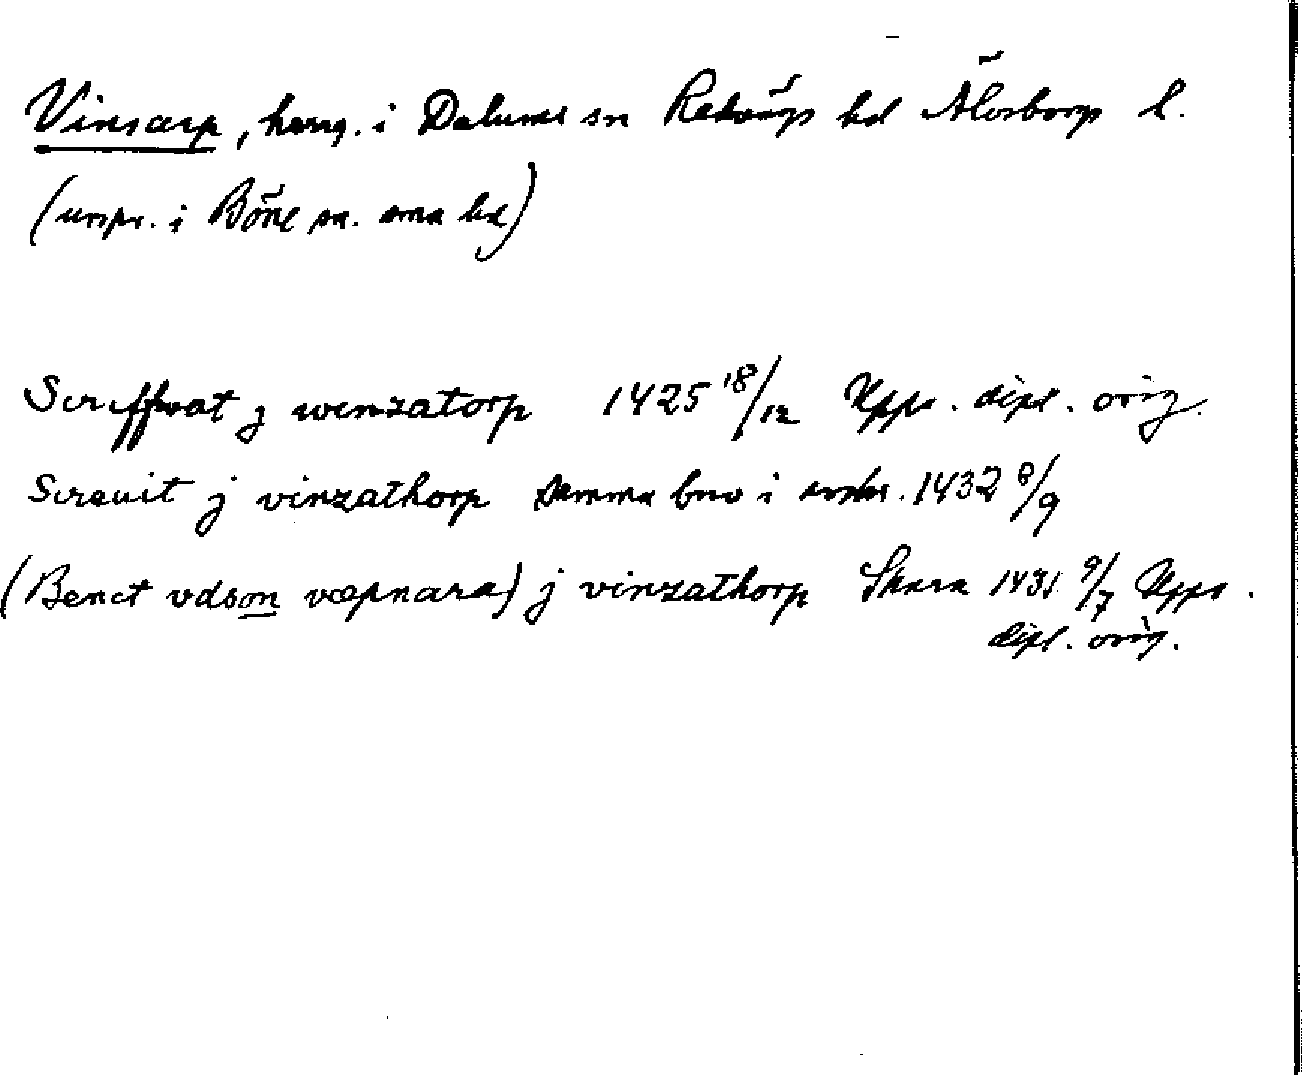 Vinsarp, herrg. i Dalums sn Redvägs hd Älvsborgs l.
(urspr. i Böne sn. sma hd)
Scriffwat j winzatorp 1425 18/12 Upps. dipl. orig.
Screuit j vinzathorp samma brev i avskr. 1432 8/9
(Benct vdson wæpnara) j vinzathorp Skara 1431 9/7 Upps.
dipl. orig.